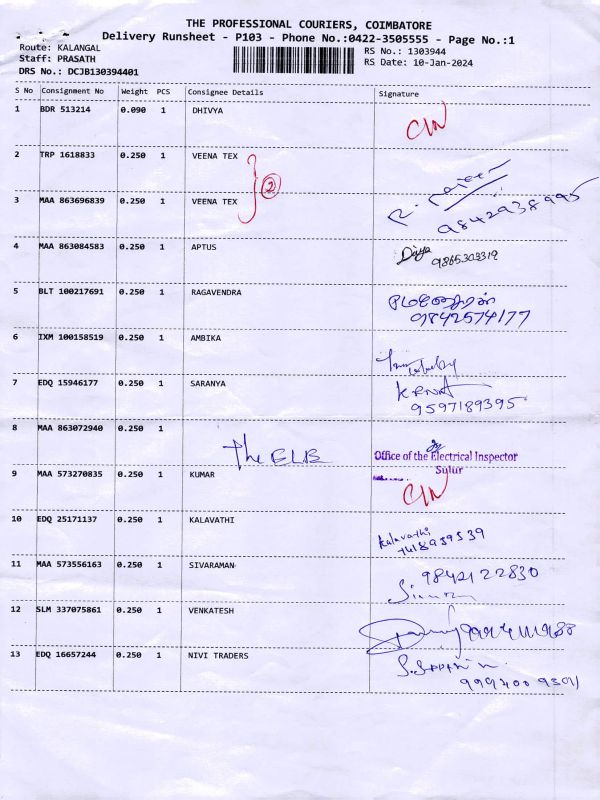 THE PROFESSIONAL COURIERS, COIMBATORE
Delivery Runsheet - P103 - Phone No.:0422-3505555 - Page No.:1
Route: KALANGAL
Staff: PRASATH
DRS No.: DCJB130394401
RS No.: 1303944
RS Date: 10-Jan-2024
S No Consignment No Weight PCS Consignee Details Signature
1 BDR 513214 0.090 1 DHIVYA
2 TRP 1618833 0.250 1 VEENA TEX
2
3 MAA 863696839 0.250 1 VEENA TEX 9842938995
4 MAA 863084583 0.250 1 APTUS Divya 9865303319
5 BLT 100217691 0.250 1 RAGAVENDRA
9842574177
6 IXM 100158519 0.250 1 AMBIKA
7 EDQ 15946177 0.250 1 SARANYA
9597189395
8 MAA 863072940 0.250 1 The ELB Office of the Electrical Inspector
Sulur
9 MAA 573270835 0.250 1 KUMAR
10 EDQ 25171137 0.250 1 KALAVATHI Kalavathi
11 MAA 573556163 0.250 1 SIVARAMAN 9842122830
12 SLM 337075861 0.250 1 VENKATESH
13 EDQ 16657244 0.250 1 NIVI TRADERS